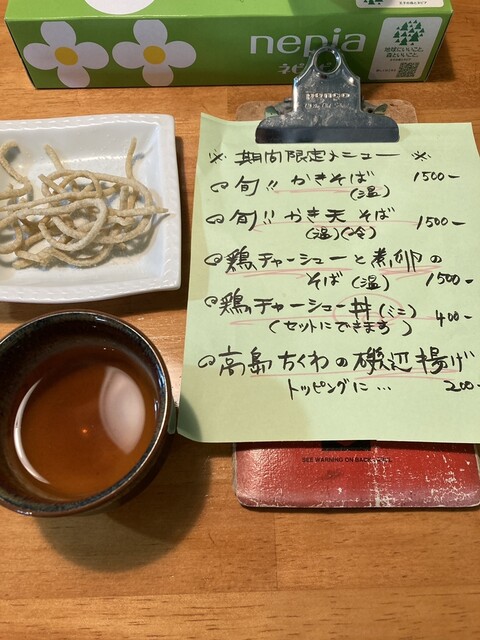 nepia
ネピ
地球にいいこと。
※ 期間限定メニュー ※
旬!! かきそば 1500-
(温)
旬!! かき天 そば 1500-
(温)(冷)
鶏チャーシューと煮卵の
そば (温) 1500-
鶏チャーシュー丼(ミニ) 400-
(セットにできます)
高島ちくわの磯辺揚げ
トッピングに… 200-
SEE WARNING ON BACK